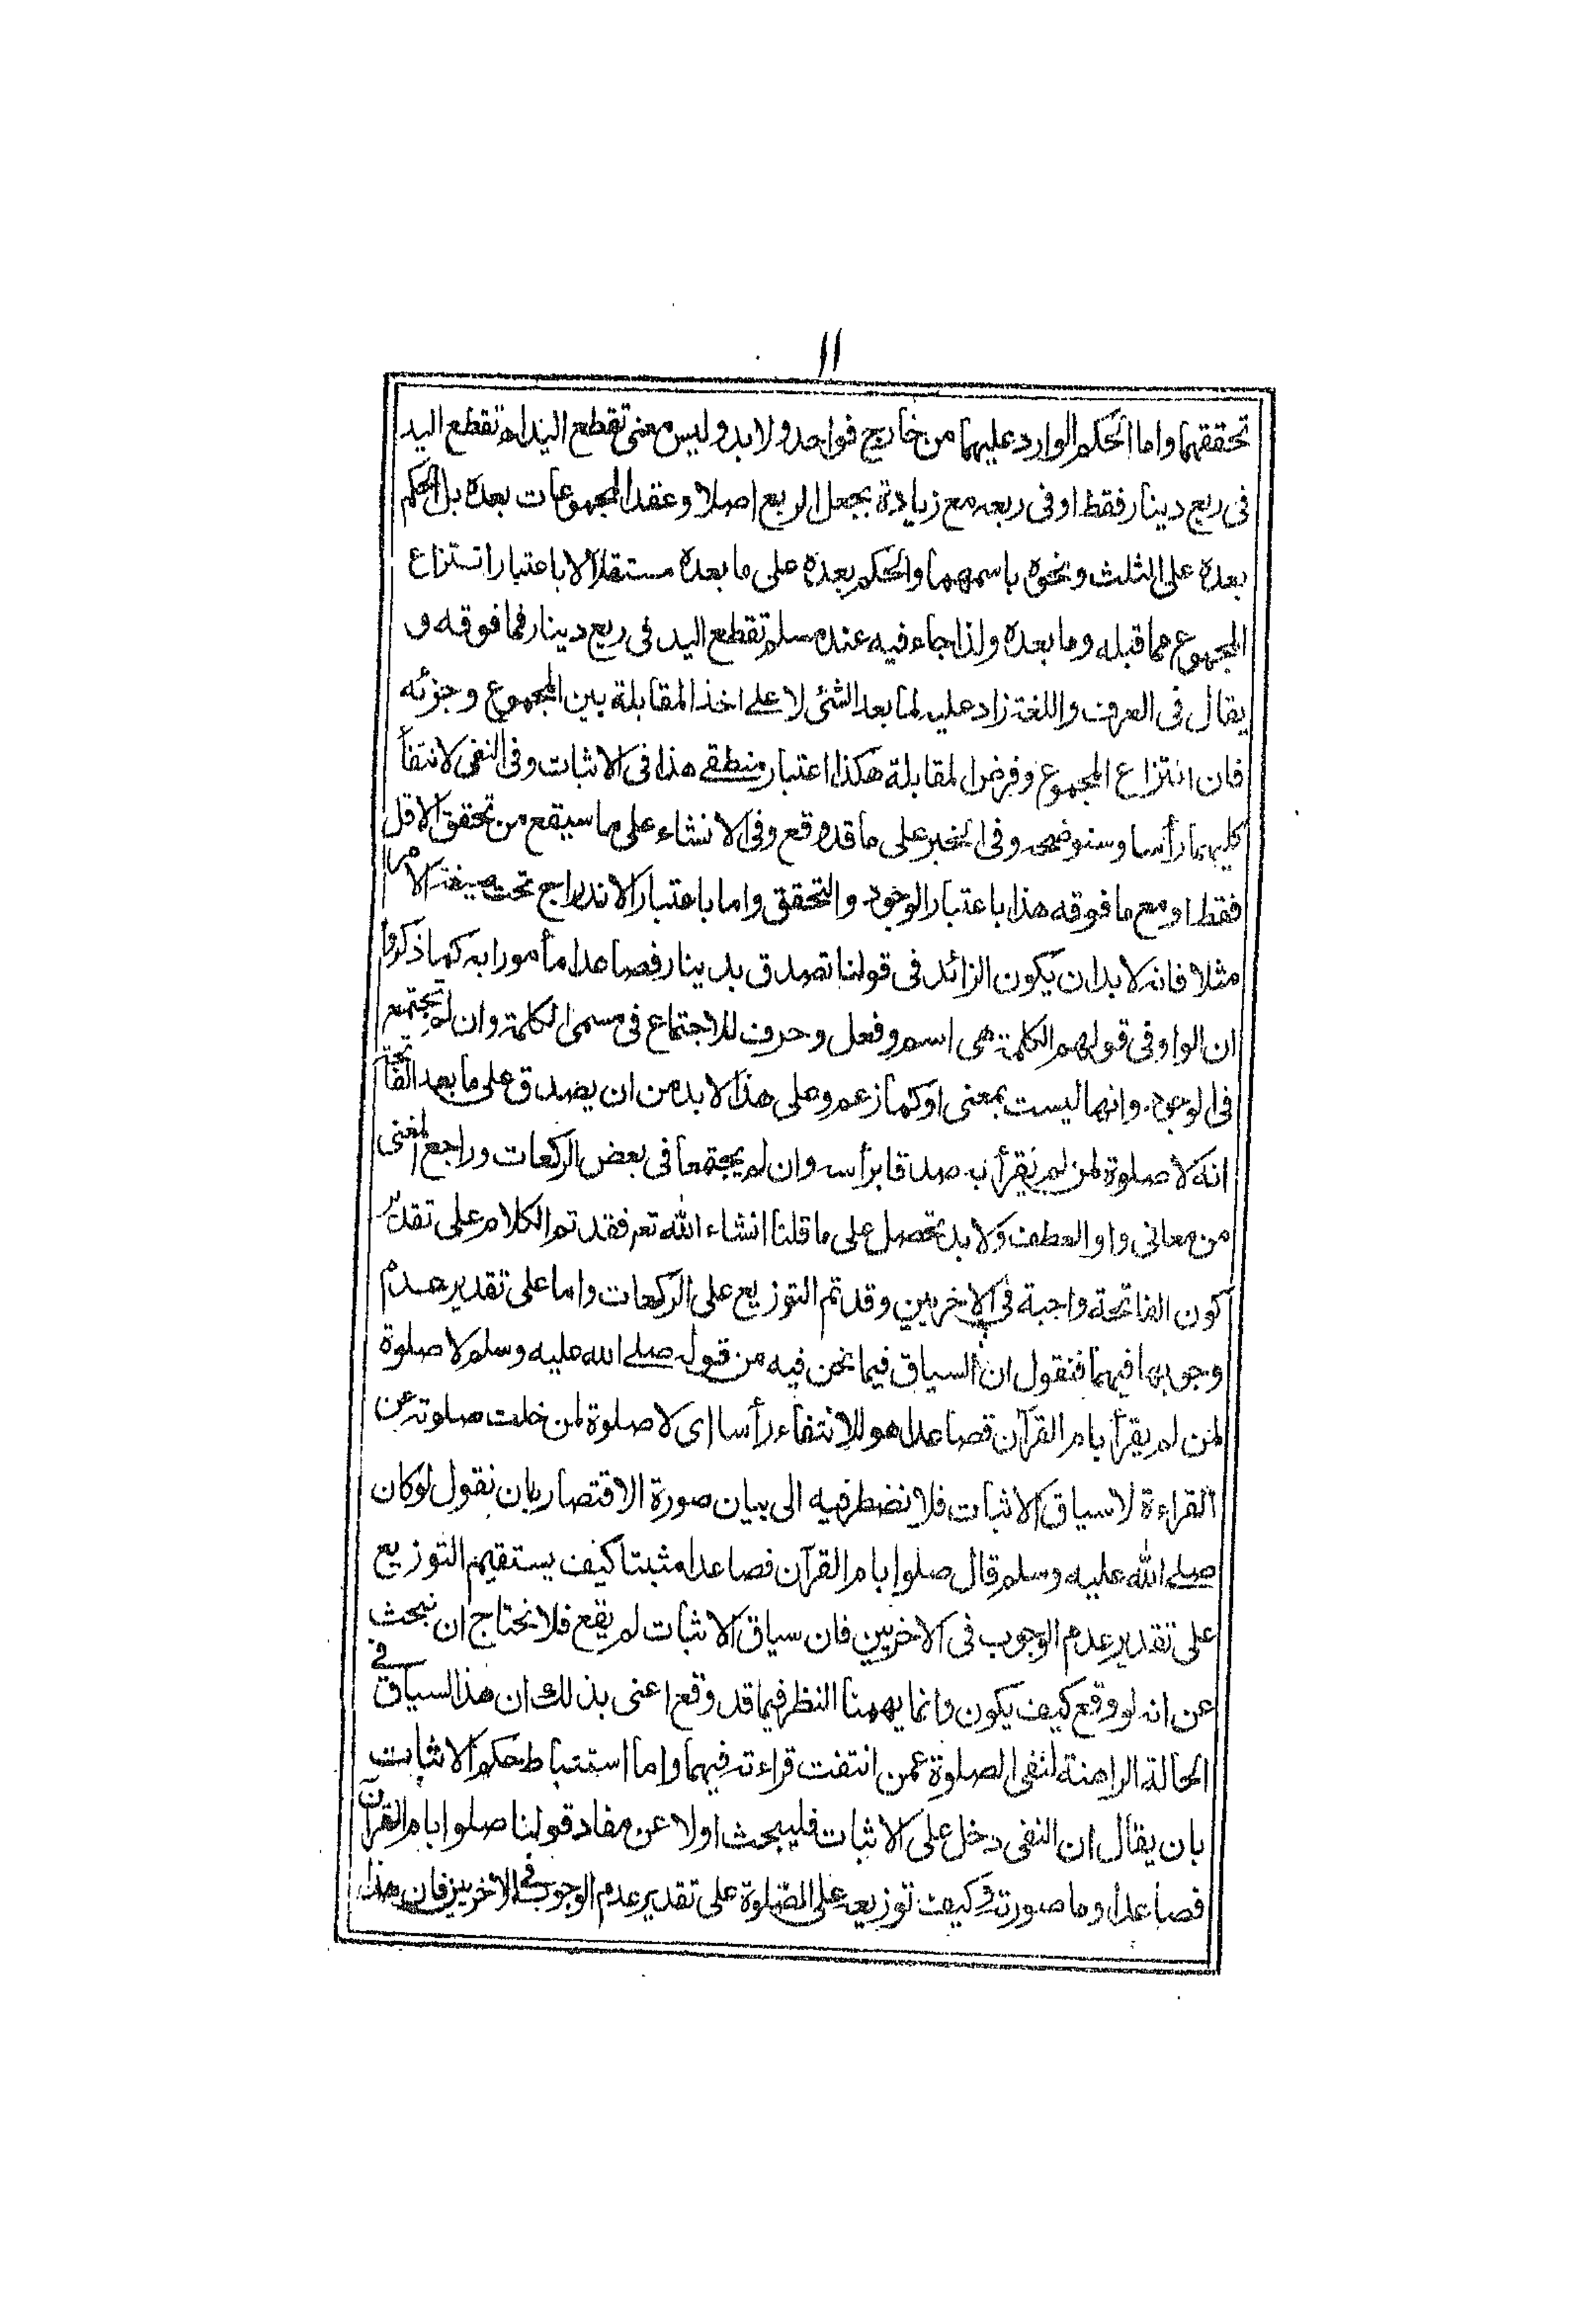 ١١
تحققهما واما الحكم الوارد عليهما من خارج فواحد ولا بد وليس معنى تقطع اليد اه تقطع اليد
فى ربع دينار فقط او فى ربعه مع زيادة بجعل الربع اصلا وعقد المجموعات بعده بل الحكم
بعده على الثلث ونحوه باسمهما والحكم بعده على ما بعده مستقلا لا باعتبار انتزاع
المجموع مما قبله وما بعده ولذا جاء فيه عند مسلم تقطع اليد فى ربع دينار فما فوقه و
يقال فى العرف واللغة زاد عليه لما بعد الشئ لا على اخذ المقابلة بين المجموع وجزئه
فان انتزاع المجموع وفرض المقابلة هكذا اعتبار منطقى هذا فى الاثبات وفى النفى لانتفأ
كليهما رأسا وسنوضحه وفى الخبر على ما قد وقع وفى الانشاء على ما سيقع من تحقق الاقل
فقط او مع ما فوقه هذا باعتبار الوجود والتحقق واما باعتبار الاندراج تحت صيغة الامر
مثلا فانه لا بد ان يكون الزائد فى قولنا تصدق بدينار فصاعدا مأمورا به كما ذكروا
ان الواو فى قولهم الكلمة هى اسم وفعل وحرف للاجتماع فى مسمى الكلمة وان لم تجتمع
فى الوجود. وانها ليست بمعنى او كما زعم وعلى هذا لا بد من ان يصدق على ما بعد الفاتحة
انه لا صلوة لمن لم يقرأ به صدقا برأسه وان لم يجتمعا فى بعض الركعات وراجع المغنى
من معانى واو العطف ولا بد تحصل على ما قلنا انشاء الله تعم فقد تم الكلام على تقدير
كون الفاتحة واجبة فى الاخريين وقد تم التوزيع على الركعات واما على تقدير عدم
وجوبها فيهما فنقول ان السياق فيما نحن فيه من قوله صلے الله عليه وسلم لا صلوة
لمن لم يقرأ بام القرآن فصاعدا هو للانتفاء رأسا اى لا صلوة لمن خلت صلوته عن
القراءة لا سياق الاثبات فلا نضطر فيه الى بيان صورة الاقتصار بان نقول لو كان
صلے الله عليه وسلم قال صلوا بام القرآن فصاعدا مثبتا كيف يستقيم التوزيع
على تقدير عدم الوجوب فى الاخريين فان سياق الاثبات لم يقع فلا نحتاج ان نبحث
عن انه لو وقع كيف يكون وانما يهمنا النظر فيما قد وقع اعنى بذلك ان هذا السياق فى
الحالة الراهنة لنفى الصلوة عمن انتفت قراءته فيهما واما استنباط حكم الاثبات
بان يقال ان النفى دخل على الاثبات فليبحث اولا عن مفاد قولنا صلوا بام القرآن
فصاعدا وما صورته وكيف توزيعه على الصّلوة على تقدير عدم الوجوب فى الاخريين فان هذا